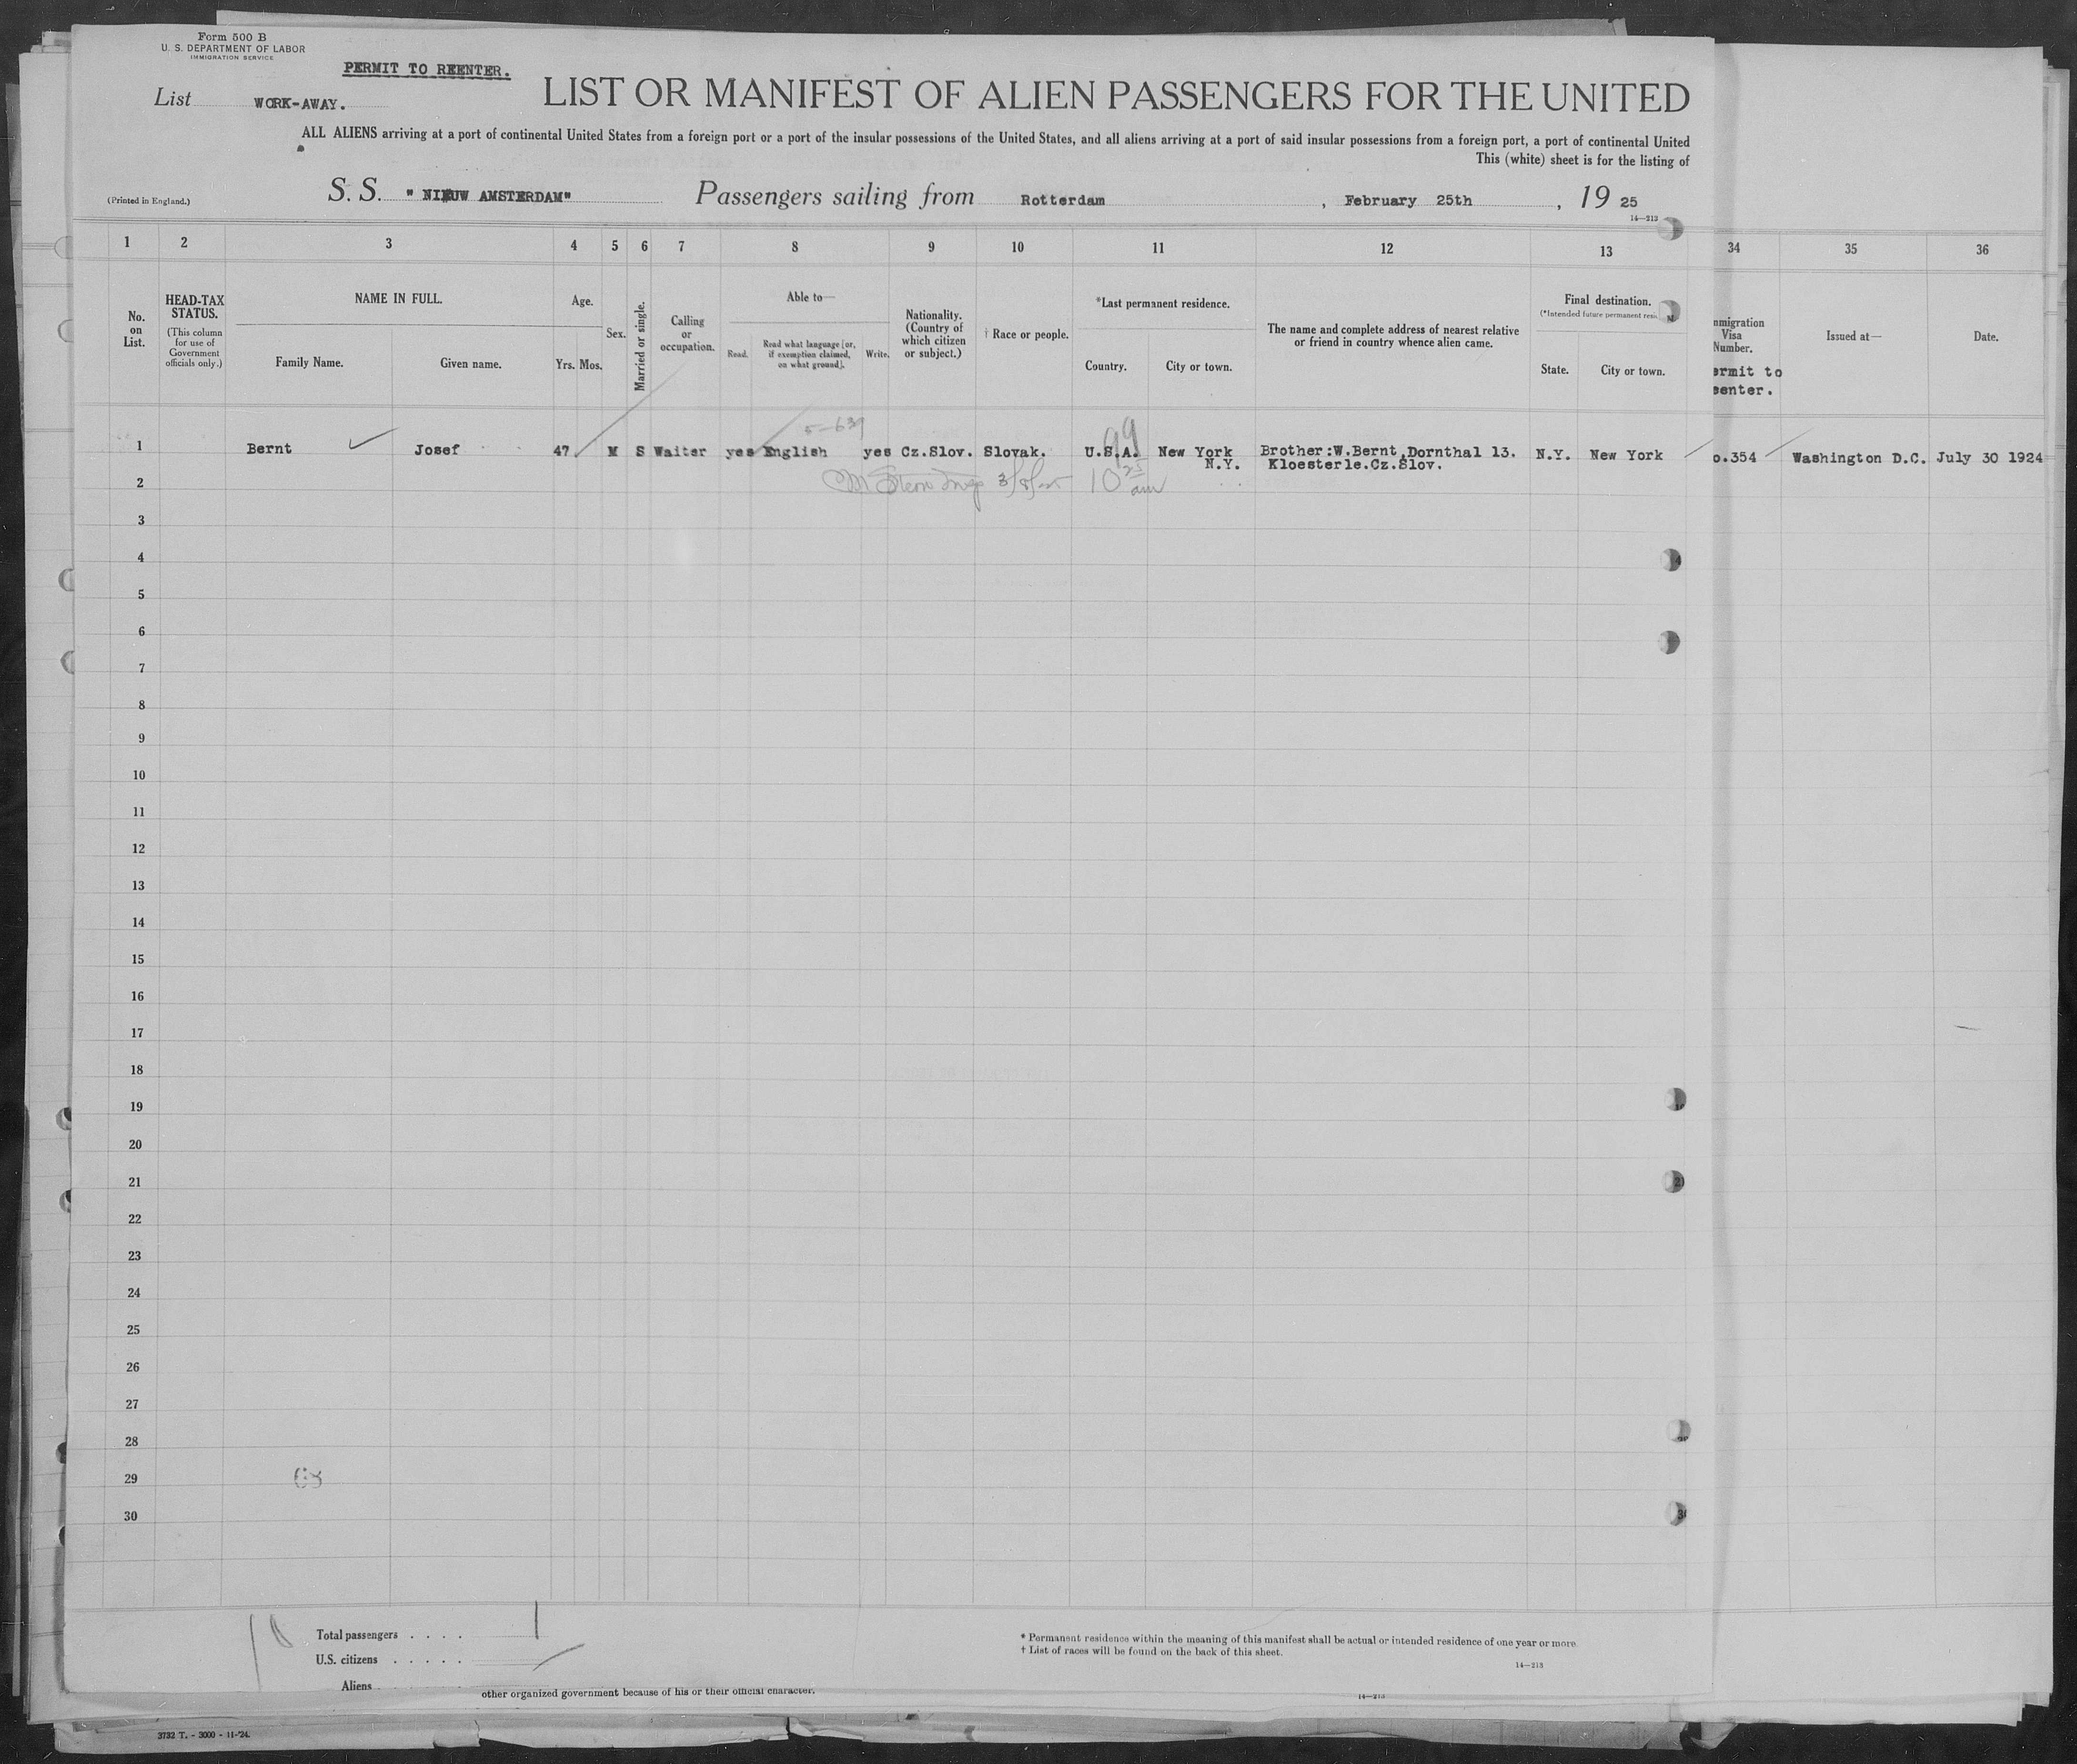 Form 500 B
U. S. DEPARTMENT OF LABOR
IMMIGRATION SERVICE
PERMIT TO REENTER.
List WORK-AWAY.
LIST OR MANIFEST OF ALIEN PASSENGERS FOR THE UNITED
ALL ALIENS arriving at a port of continental United States from a foreign port or a port of the insular possessions of the United States, and all aliens arriving at a port of said insular possessions from a foreign port, a port of continental United
This (white) sheet is for the listing of
(Printed in England.)
S. S. " NIEUW AMSTERDAM" Passengers sailing from Rotterdam , February 25th , 19 25
14—213
1 2 3 4 5 6 7 8 9 10 11 12 13 34 35 36
No. on List.
HEAD-TAX STATUS.
(This column for use of Government officials only.)
NAME IN FULL.
Family Name. Given name.
Age.
Yrs. Mos.
Sex.
Married or single.
Calling or occupation.
Able to—
Read. Read what language [or, if exemption claimed, on what ground]. Write.
Nationality. (Country of which citizen or subject.)
† Race or people.
*Last permanent residence.
Country. City or town.
The name and complete address of nearest relative or friend in country whence alien came.
Final destination.
(*Intended future permanent resi
State. City or town.
mmigration
Visa
Number.
ermit to
eenter.
Issued at—
Date.
5-639
99
1 Bernt Josef 47 M S Waiter yes English yes Cz.Slov. Slovak. U.S.A. New York Brother:W.Bernt,Dornthal 13. N.Y. New York o.354 Washington D.C. July 30 1924
N.Y. Kloesterle.Cz.Slov.
2
3/8/25 10 25 am
3
4
5
6
7
8
9
10
11
12
13
14
15
16
17
18
19
20
21
22
23
24
25
26
27
28
29
30
Total passengers . . . . 1
U.S. citizens . . . . .
Aliens
* Permanent residence within the meaning of this manifest shall be actual or intended residence of one year or more.
† List of races will be found on the back of this sheet.
14—213
other organized government because of his or their official character.
14—213
3732 T. - 3000 - 11-'24.